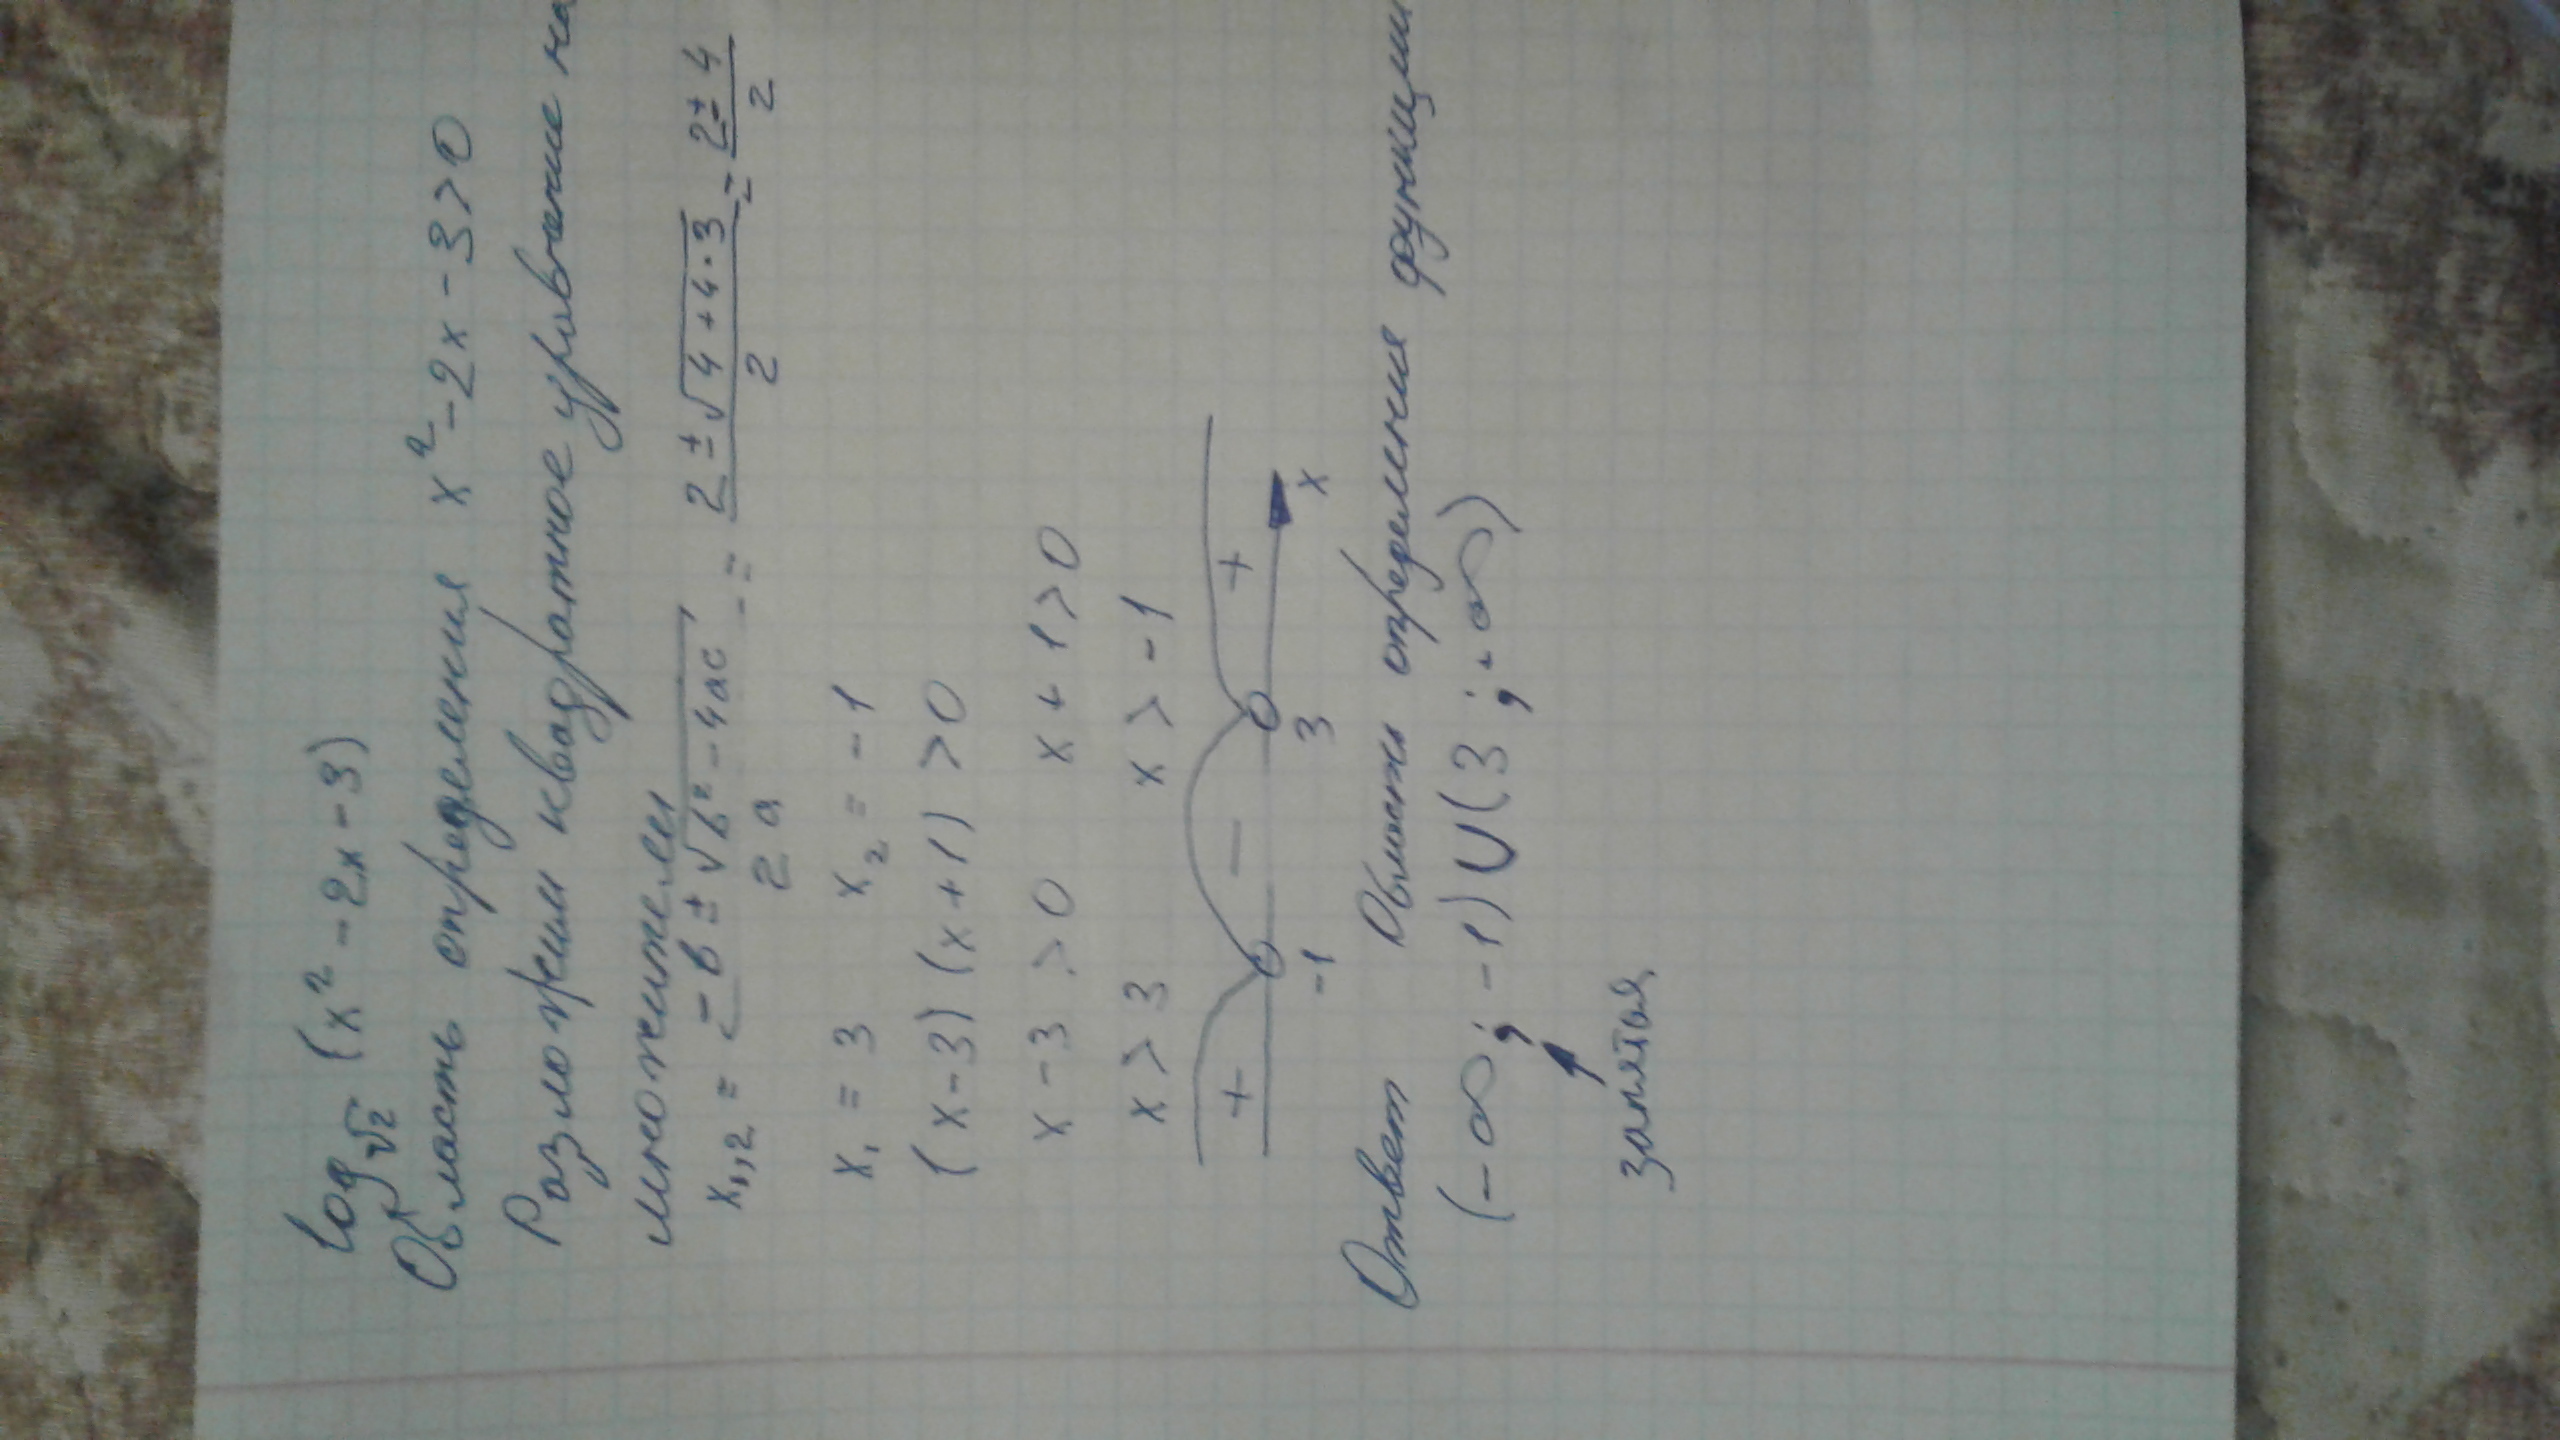 log√2 (x² - 2x - 3)
Область определения x² - 2x - 3 > 0
Разложим квадратное уравнение на
множители
x₁,₂ = (-в ± √(в² - 4ac))/(2a) = (2 ± √(4 + 4·3))/2 = (2 ± 4)/2
x₁ = 3 x₂ = -1
(x - 3)(x + 1) > 0
x - 3 > 0 x + 1 > 0
x > 3 x > -1
+ - +
-1 3 x
Ответ Область определения функции
(-∞; -1) ∪ (3; +∞)
запятая